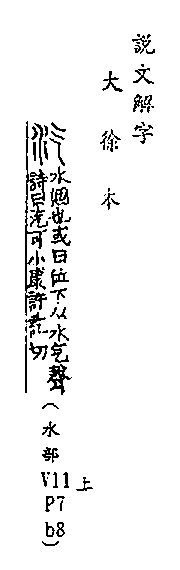 説文解字
大徐本
汽 水涸也或曰泣下从水气聲
詩曰汽可小康許訖切
(水部V11上P7b8)